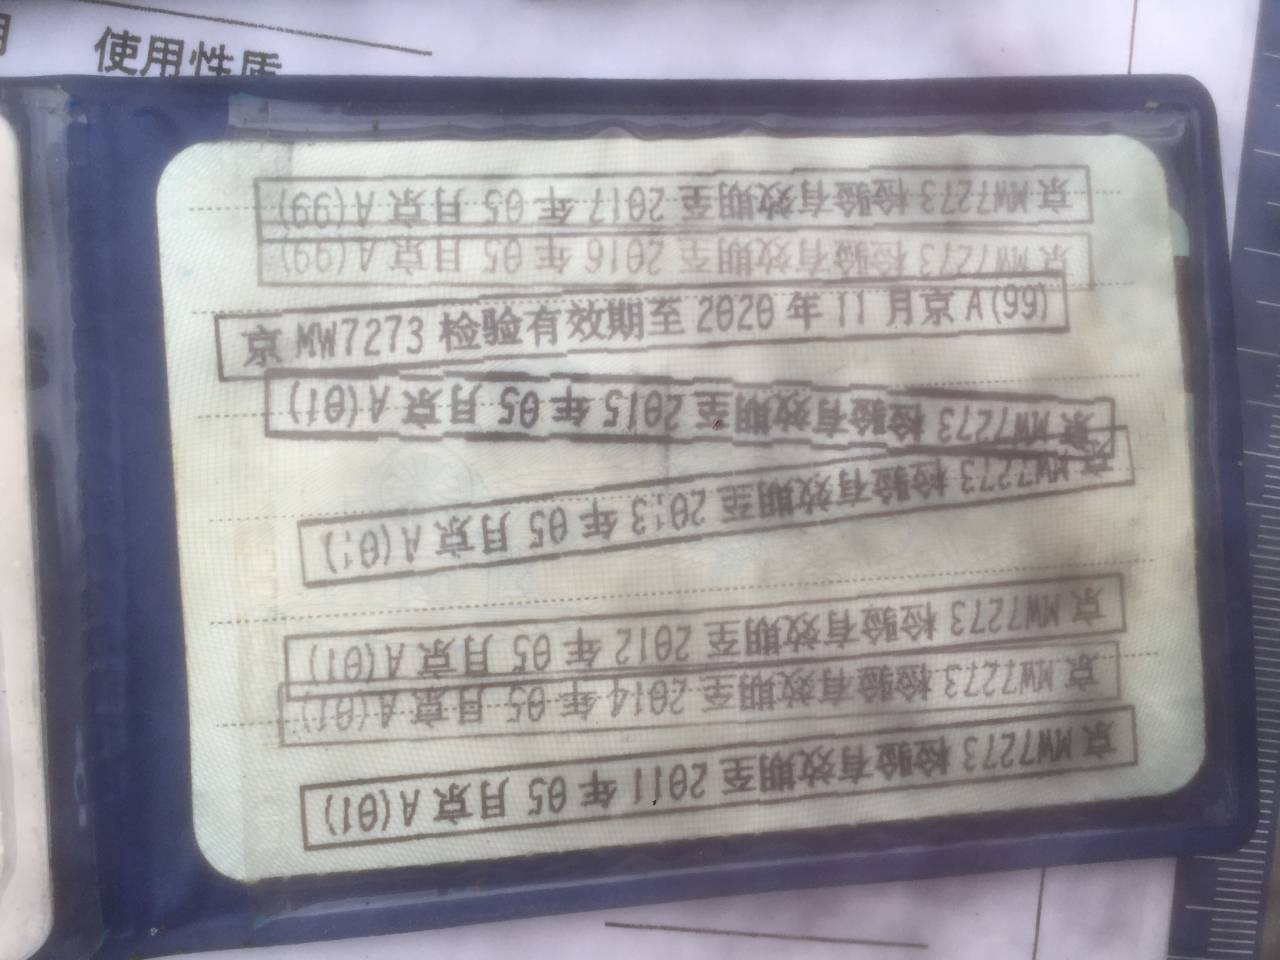 使用性质
京MW7273 检验有效期至 2017 年 05 月京 A(99)
京MW7273 检验有效期至 2016 年 05 月京 A(99)
京 MW7273 检验有效期至 2020 年 11 月京 A(99)
京MW7273 检验有效期至 2015 年 05 月京 A(01)
京MW7273 检验有效期至 2013 年 05 月京 A(01)
京MW7273 检验有效期至 2012 年 05 月京 A(01)
京MW7273 检验有效期至 2014 年 05 月京 A(01)
京MW7273 检验有效期至 2011 年 05 月京 A(01)